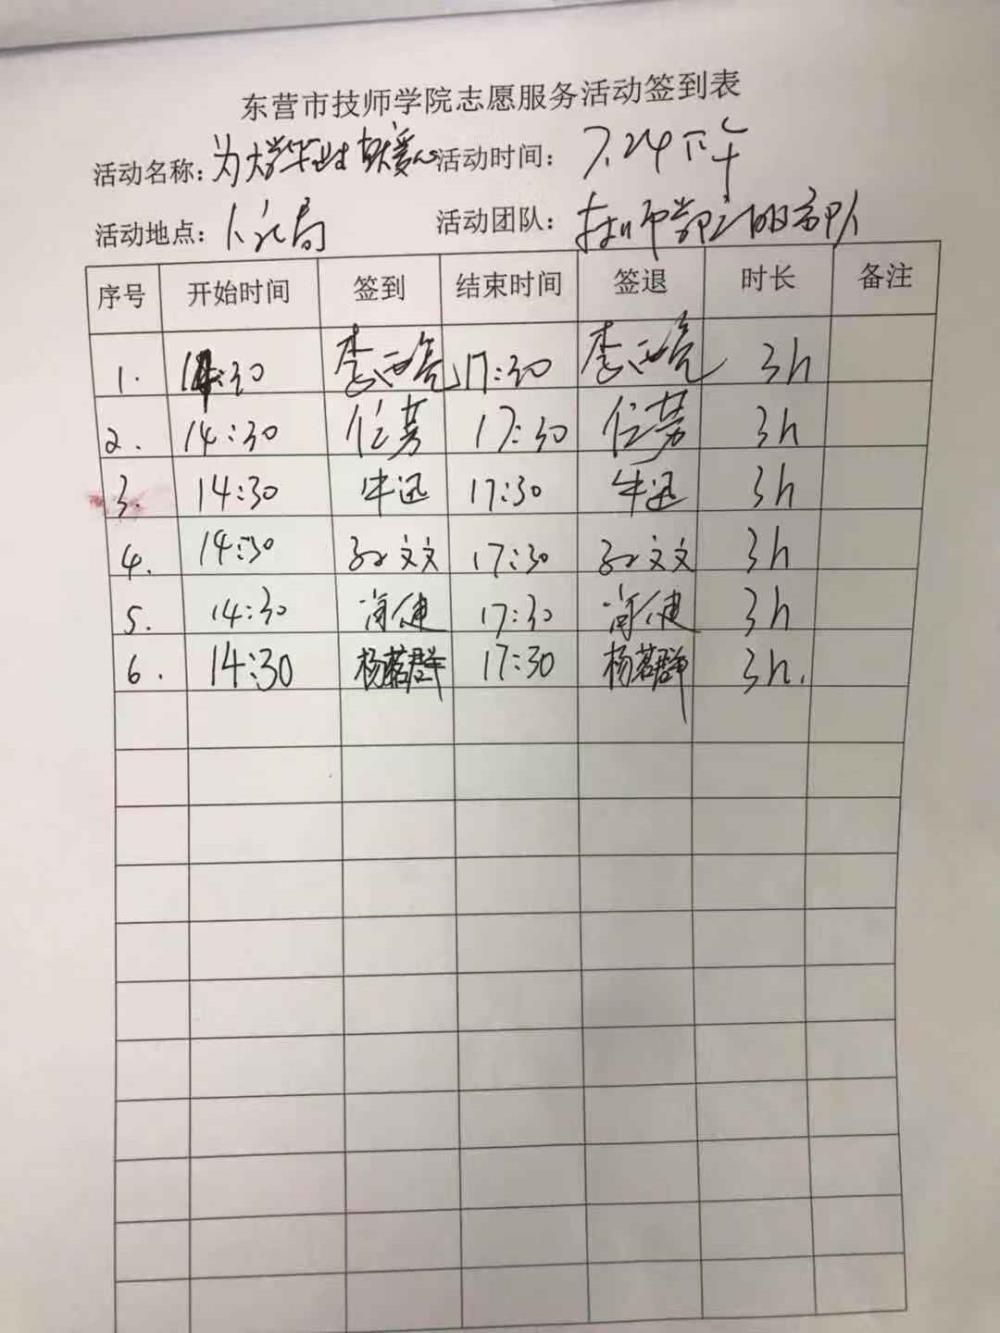 东营市技师学院志愿服务活动签到表
活动名称：为大学毕业生献爱心 活动时间：7.24下午
活动地点：人社局 活动团队：技师学院
序号 开始时间 签到 结束时间 签退 时长 备注
1. 14:30 李 17:30 李 3h
2. 14:30 任芳 17:30 任芳 3h
3. 14:30 牛迅 17:30 牛迅 3h
4. 14:30 孙文文 17:30 孙文文 3h
5. 14:30 尚健 17:30 尚健 3h
6. 14:30 杨茗群 17:30 杨茗群 3h.